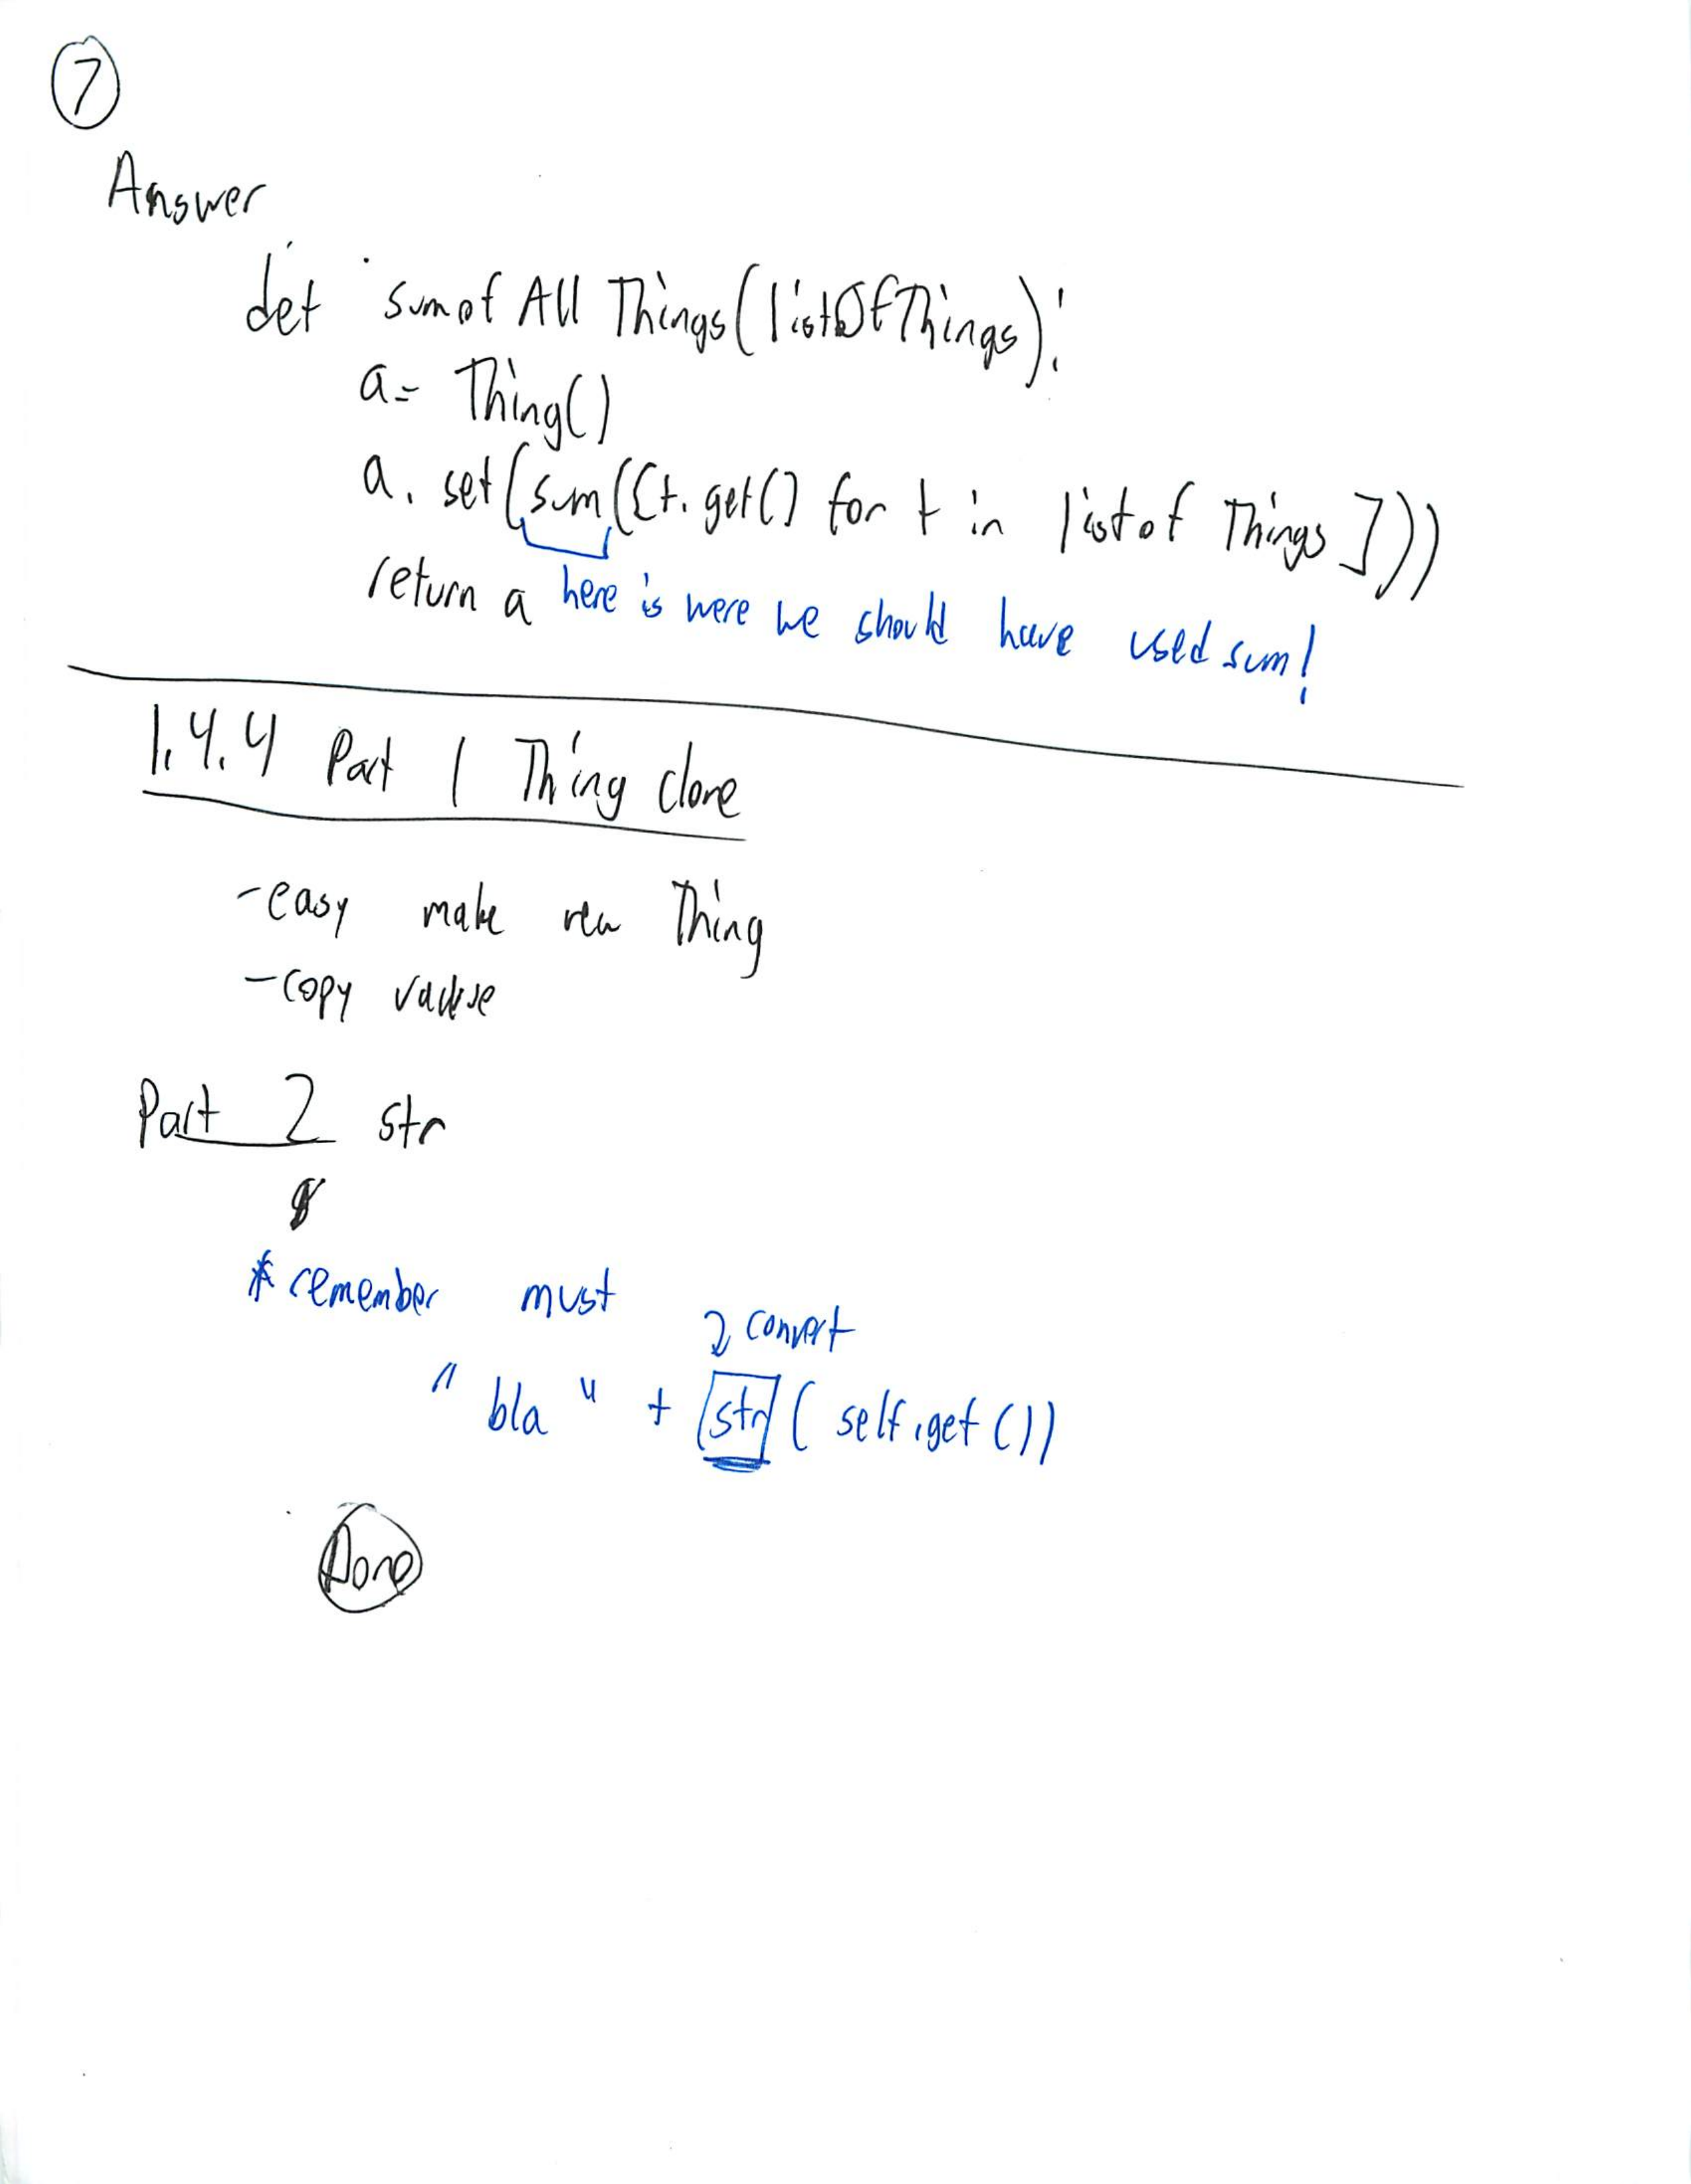 7
Answer
def sumof All Things(listOfThings):
a= Thing()
a. set(sum([t. get() for t in listof Things])))
return a here is were we should have used sum!
1.4.4 Part 1 Thing clone
-easy make new Thing
-copy value
Part 2 str
* remember must
2 convert
"bla" + str( self.get())
Done